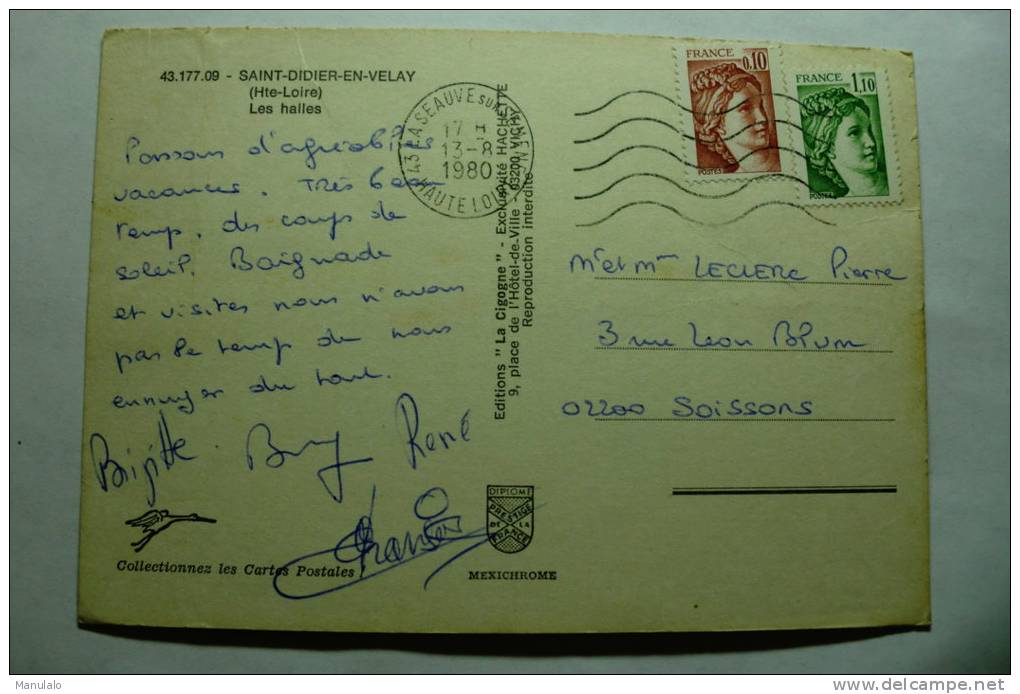 43.177.09 - SAINT-DIDIER-EN-VELAY
(Hte-Loire)
Les halles
Passons d'agréables
vacances. Très beau
temp, des coups de
soleil. Baignade
et visites nous n'avons
pas le temp de nous
ennuyer du tout.
Brigitte René
Collectionnez les Cartes Postales
43 LA SEAUVE SUR SEMENE
17 H
13-8
1980
HAUTE LOIRE
Editions " La Cigogne " - Exclusivité HACHETTE
9, place de l'Hôtel-de-Ville - 03200 VICHY
Reproduction interdite
DIPLOME
PRESTIGE
DE LA
FRANCE
MEXICHROME
FRANCE
0,10
POSTES
FRANCE
1,10
POSTES
Mr et Mme LECLERC Pierre
3 rue Leon Blum
02200 Soissons
Manulalo
delcampe.net